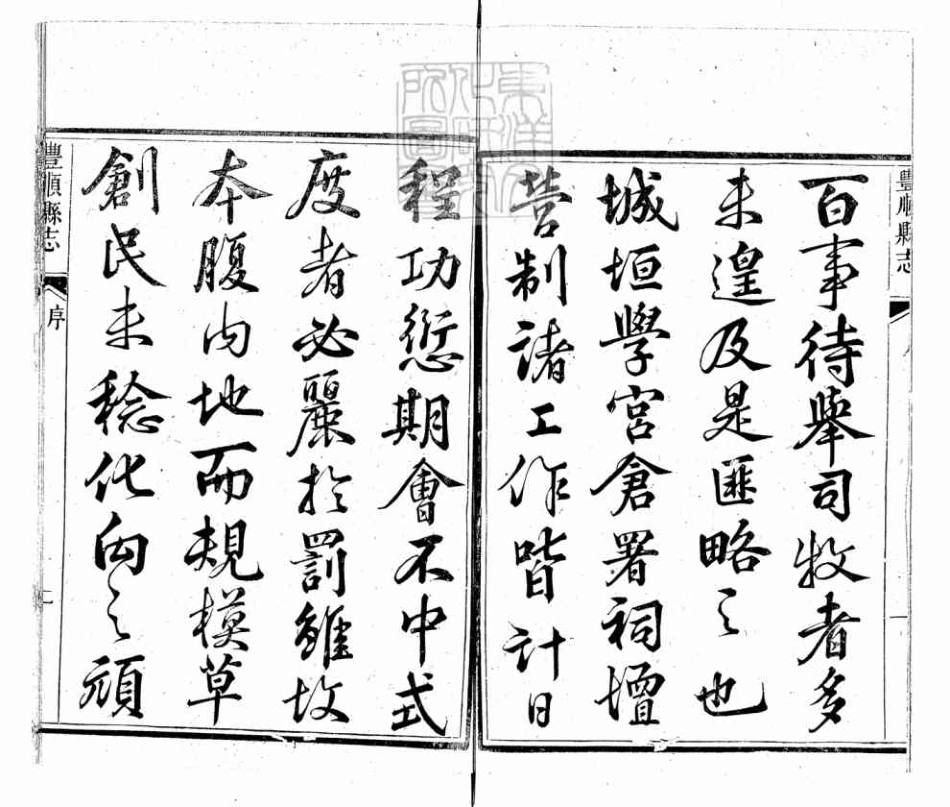 豐順縣志
百事待舉司牧者多
未遑及是匪略之也
城垣學宮倉署祠壇
營制諸工作皆計日
程功愆期會不中式
度者必麗於罰雖故
本腹內地而規模草
創民未稔化向之頑
豐順縣志 序